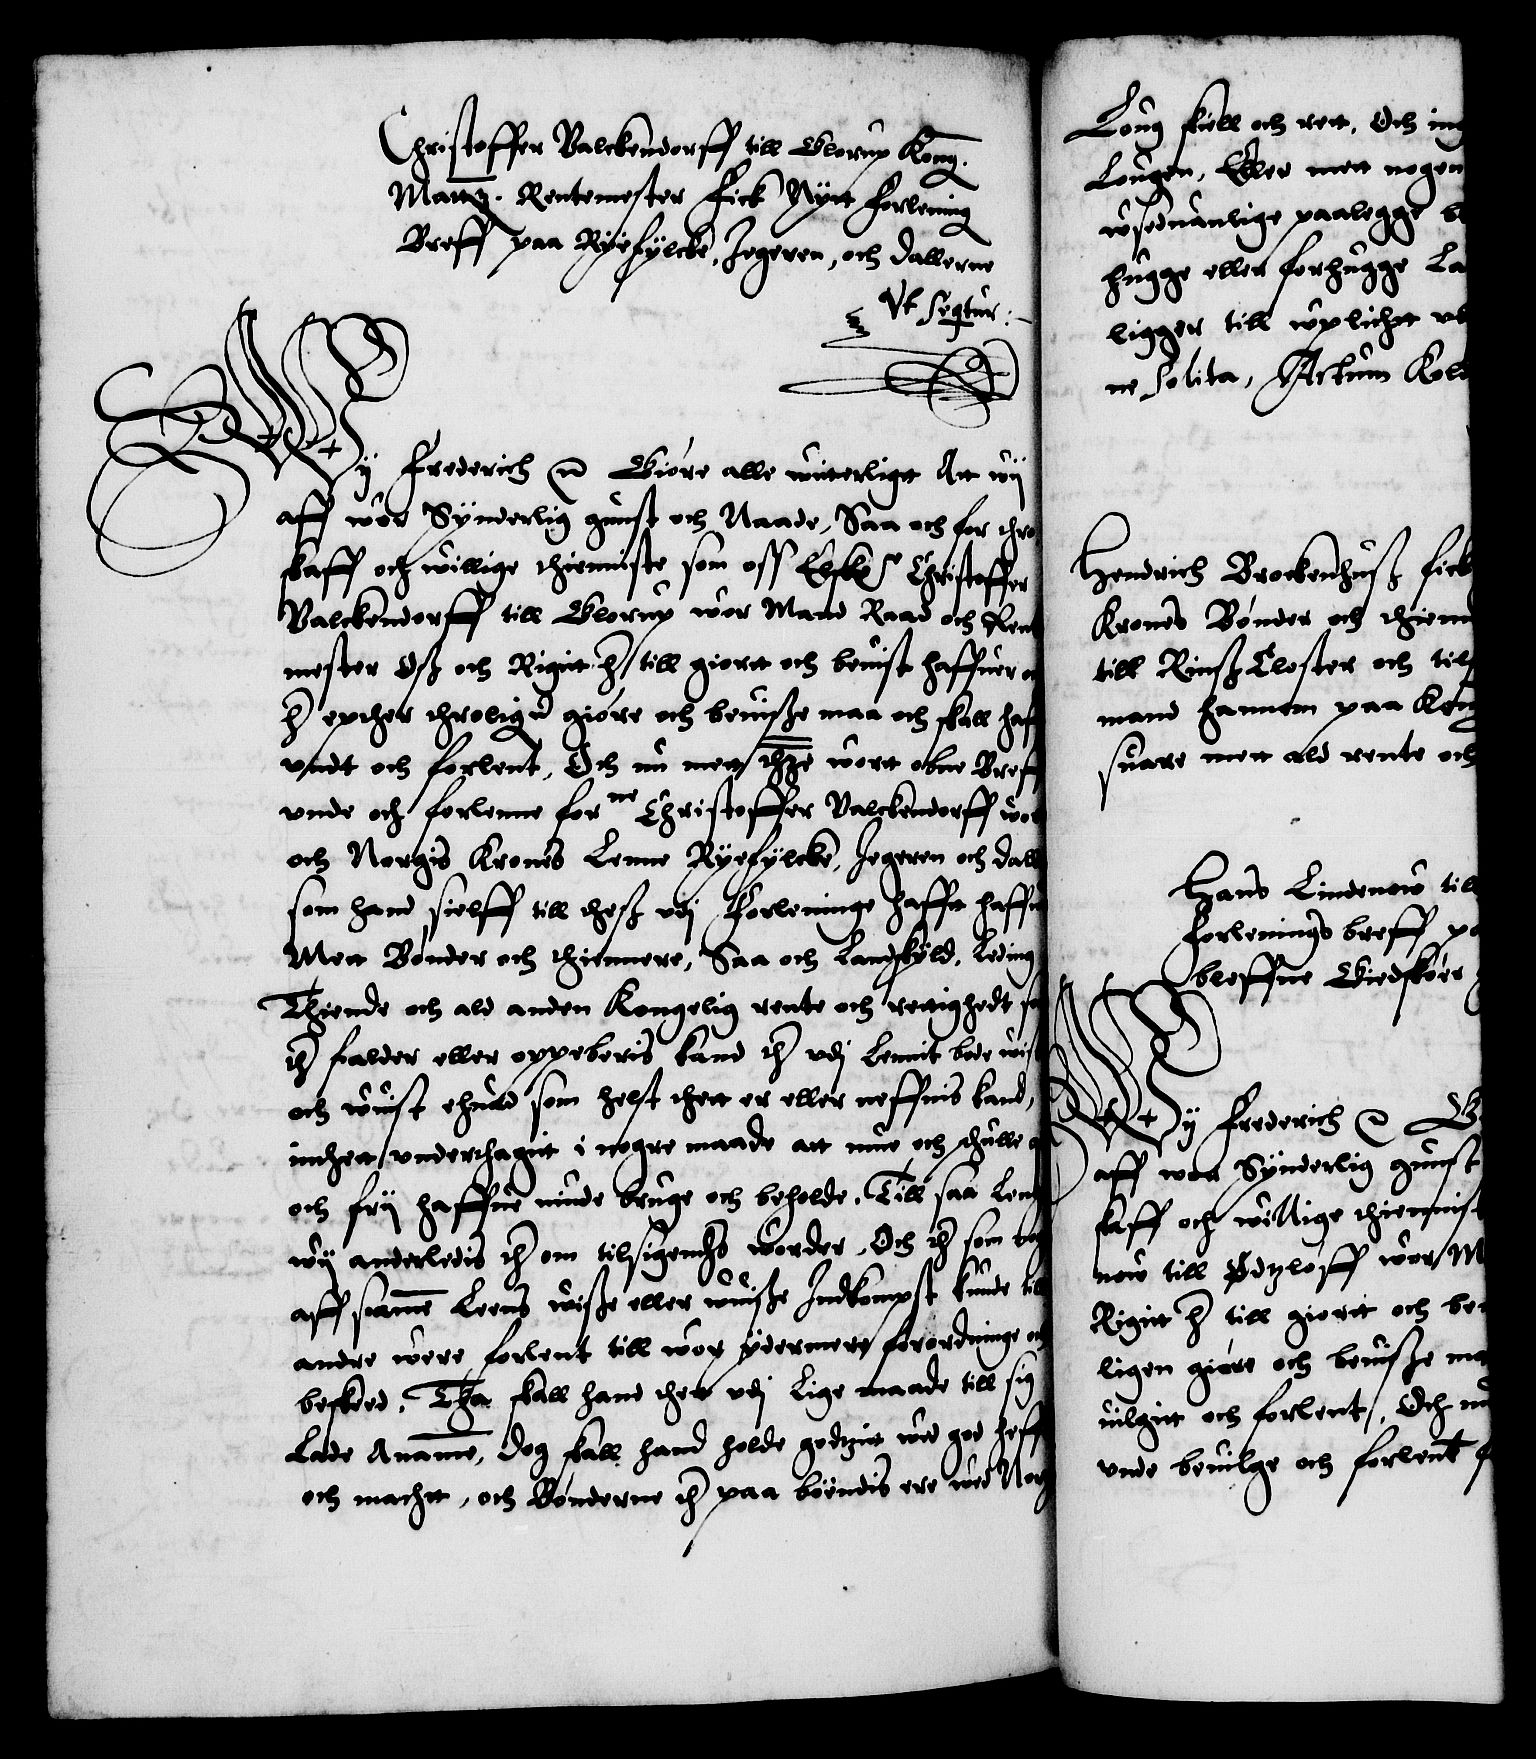 Christoffer Valckendorff till Glorup Kong.
Matz. Rentemester Fick Nytt Forlening
Breff paa Ryefylcke, Jegeren, och dallerne
Vt Seqtur:-
Wy Frederich Giøre alle witterligt Att wij
aff wor Synderlig gunst och Naade, Saa och for thro
skaff och willige thienniste som oss Elske Christoffer
Valckendorff till Glorup wor Mand Raad och Rent
mester Oss och Rigitt h till giort och beuist haffuer
h epther throlig giøre och beuisße maa och skall haff
vndt och forlent, Och nu mett thze wort obne Breff
vnde och forlenne for ne Christoffer Valckendorff wor
och Norgis Krones Lenne Ryefylcke, Jegeren och dall
som hand sielff till thesß vdj Forleninge hafft haffu
Mett Bønder och thiennere, Saa och Landskyld, Leding
Thiende och ald anden Kongelig rente och rettighedt
th falder eller oppeberis kand th vdj Lennit bode wist
och wuist ehuad som helst thett er eller neffnis kand,
inthett vnderthagitt i nogre maade att nue och schulle
och frij haffue niude bruge och beholde, Till saa Leng
wij anderledis th om tilsigendis worder, Och th som
aff samme Leens wisße eller wuisße Indkompst kunde till
andre were forlent till wor ydermere forordninge och
beskeed, Tha skall hand thet vdj Lige maade till sig
Lade Anamme, Dog skall hand holde godtzit wed god heff
och machtt, och Bønderne th paa boendis ere wed Nor
Loug skiell och rett, Och ing
Lougen, Eller mett nogen
wsedvanlige paalegge
hugge eller forhugge La
ligger till wplichtt
ne Solita, Actum Kol
Hendrich Brockenhuß fick
Krones Bønder och thienn
till Rinß Closter och til
mand hannem paa Kong
suare mett ald rente och
Hans Lindenow till
Forlenings breff
bleffne Giedskøre
Wy Frederich
aff wor Synderlig gunst
skaff och willige thiennist
now till Ødtzløff wor M
Rigitt h till giortt och be
ligen giøre och beuisße ma
uilgitt och forlent, Och nu
vnde beuilge och forlent